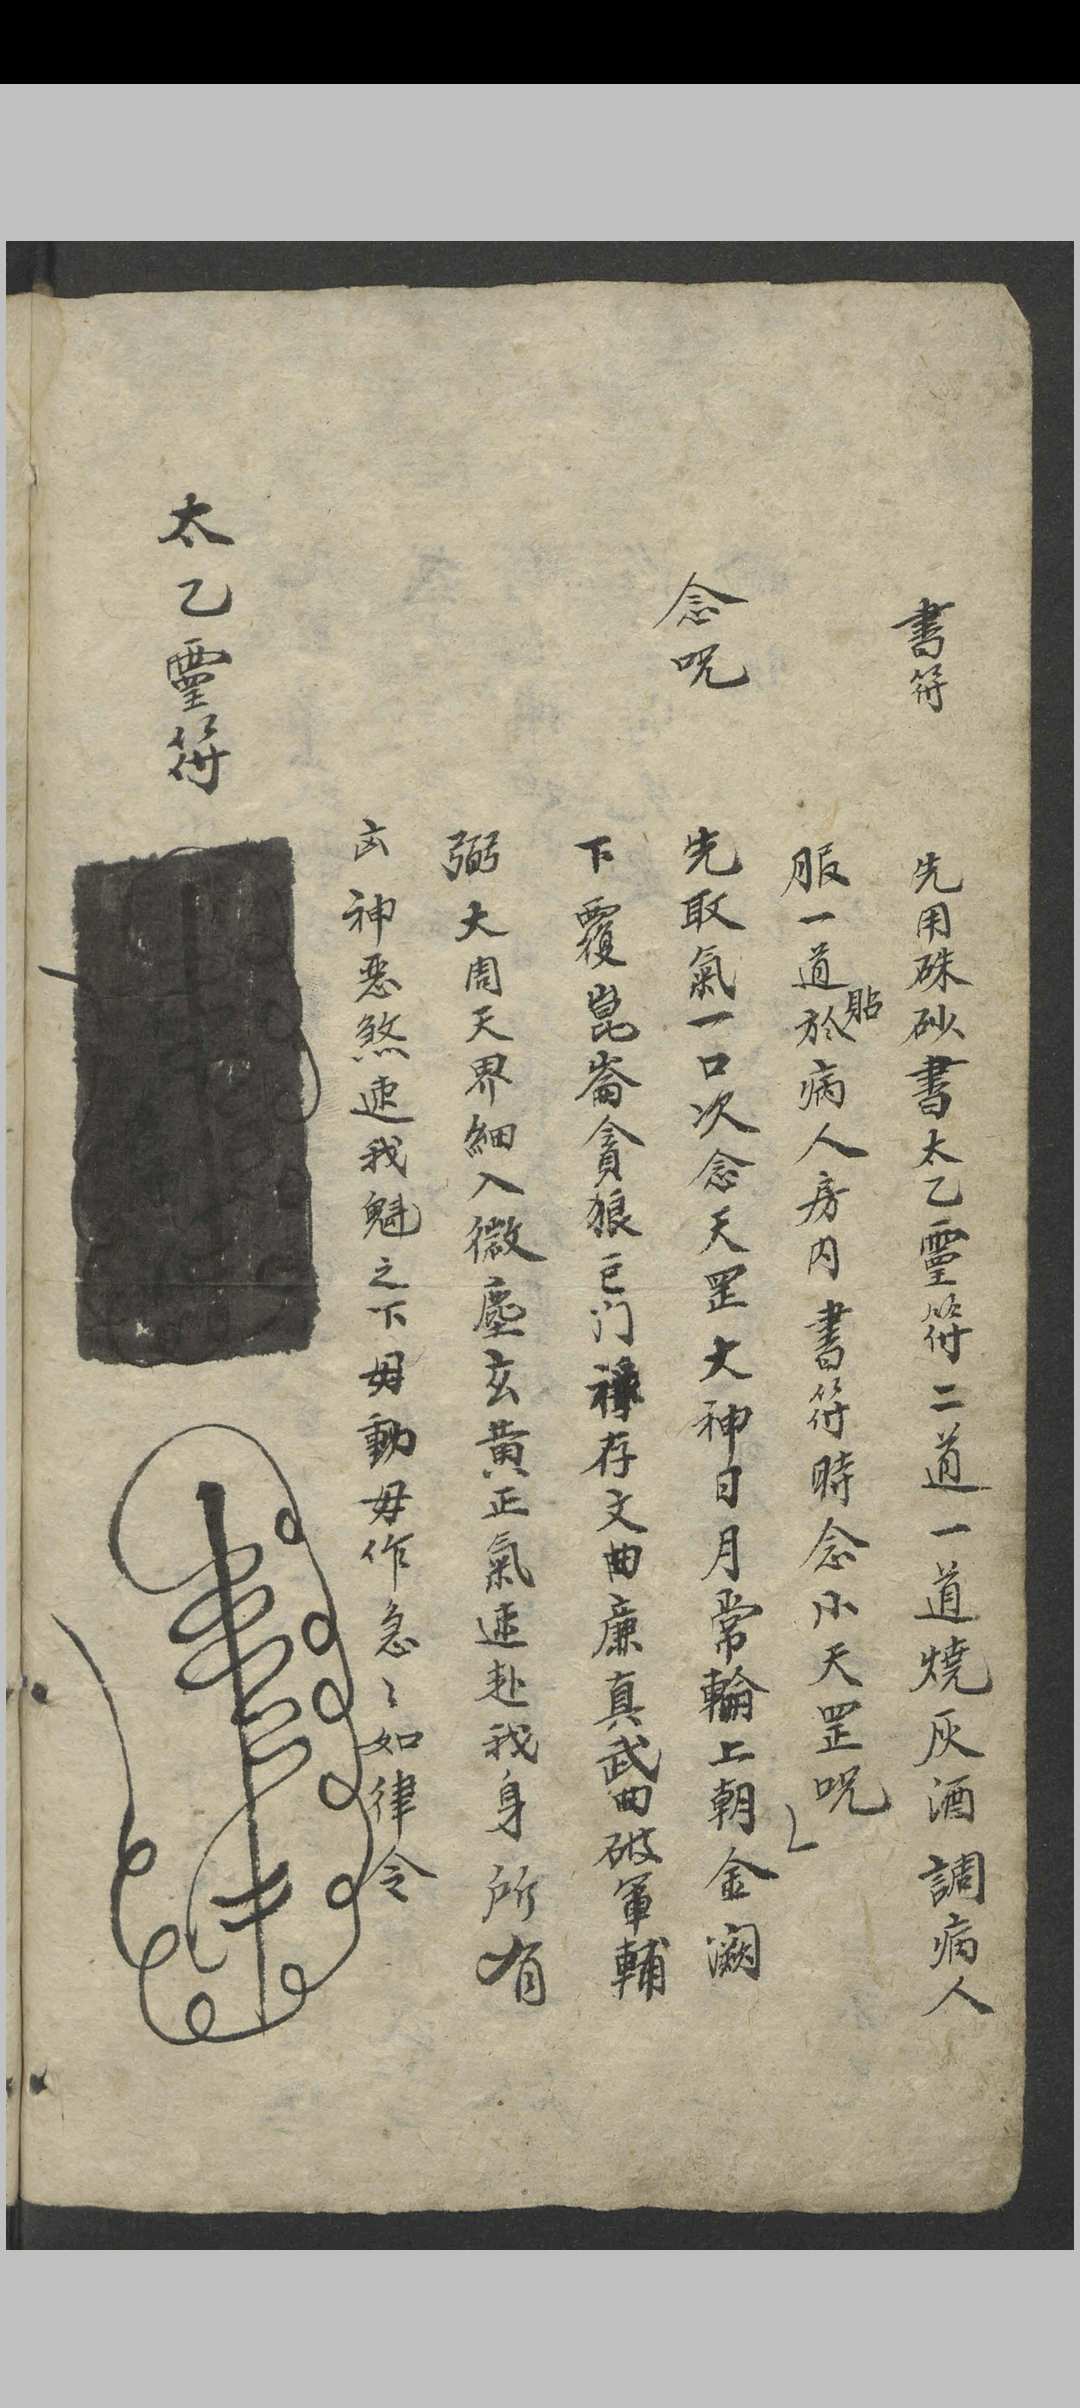 書符
先用硃砂書太乙靈符二道一道燒灰酒調病人
服一道貼於病人房内書符時念小天罡呪
念呪
先取氣一口次念天罡大神日月常輪上朝金闕
下覆崑崙貪狼巨门祿存文曲廉真武曲破軍輔
弼大周天界細入微塵玄黄正氣速赴我身所有
凶神惡煞速我魁之下毋動毋作急〻如律令
太乙靈符